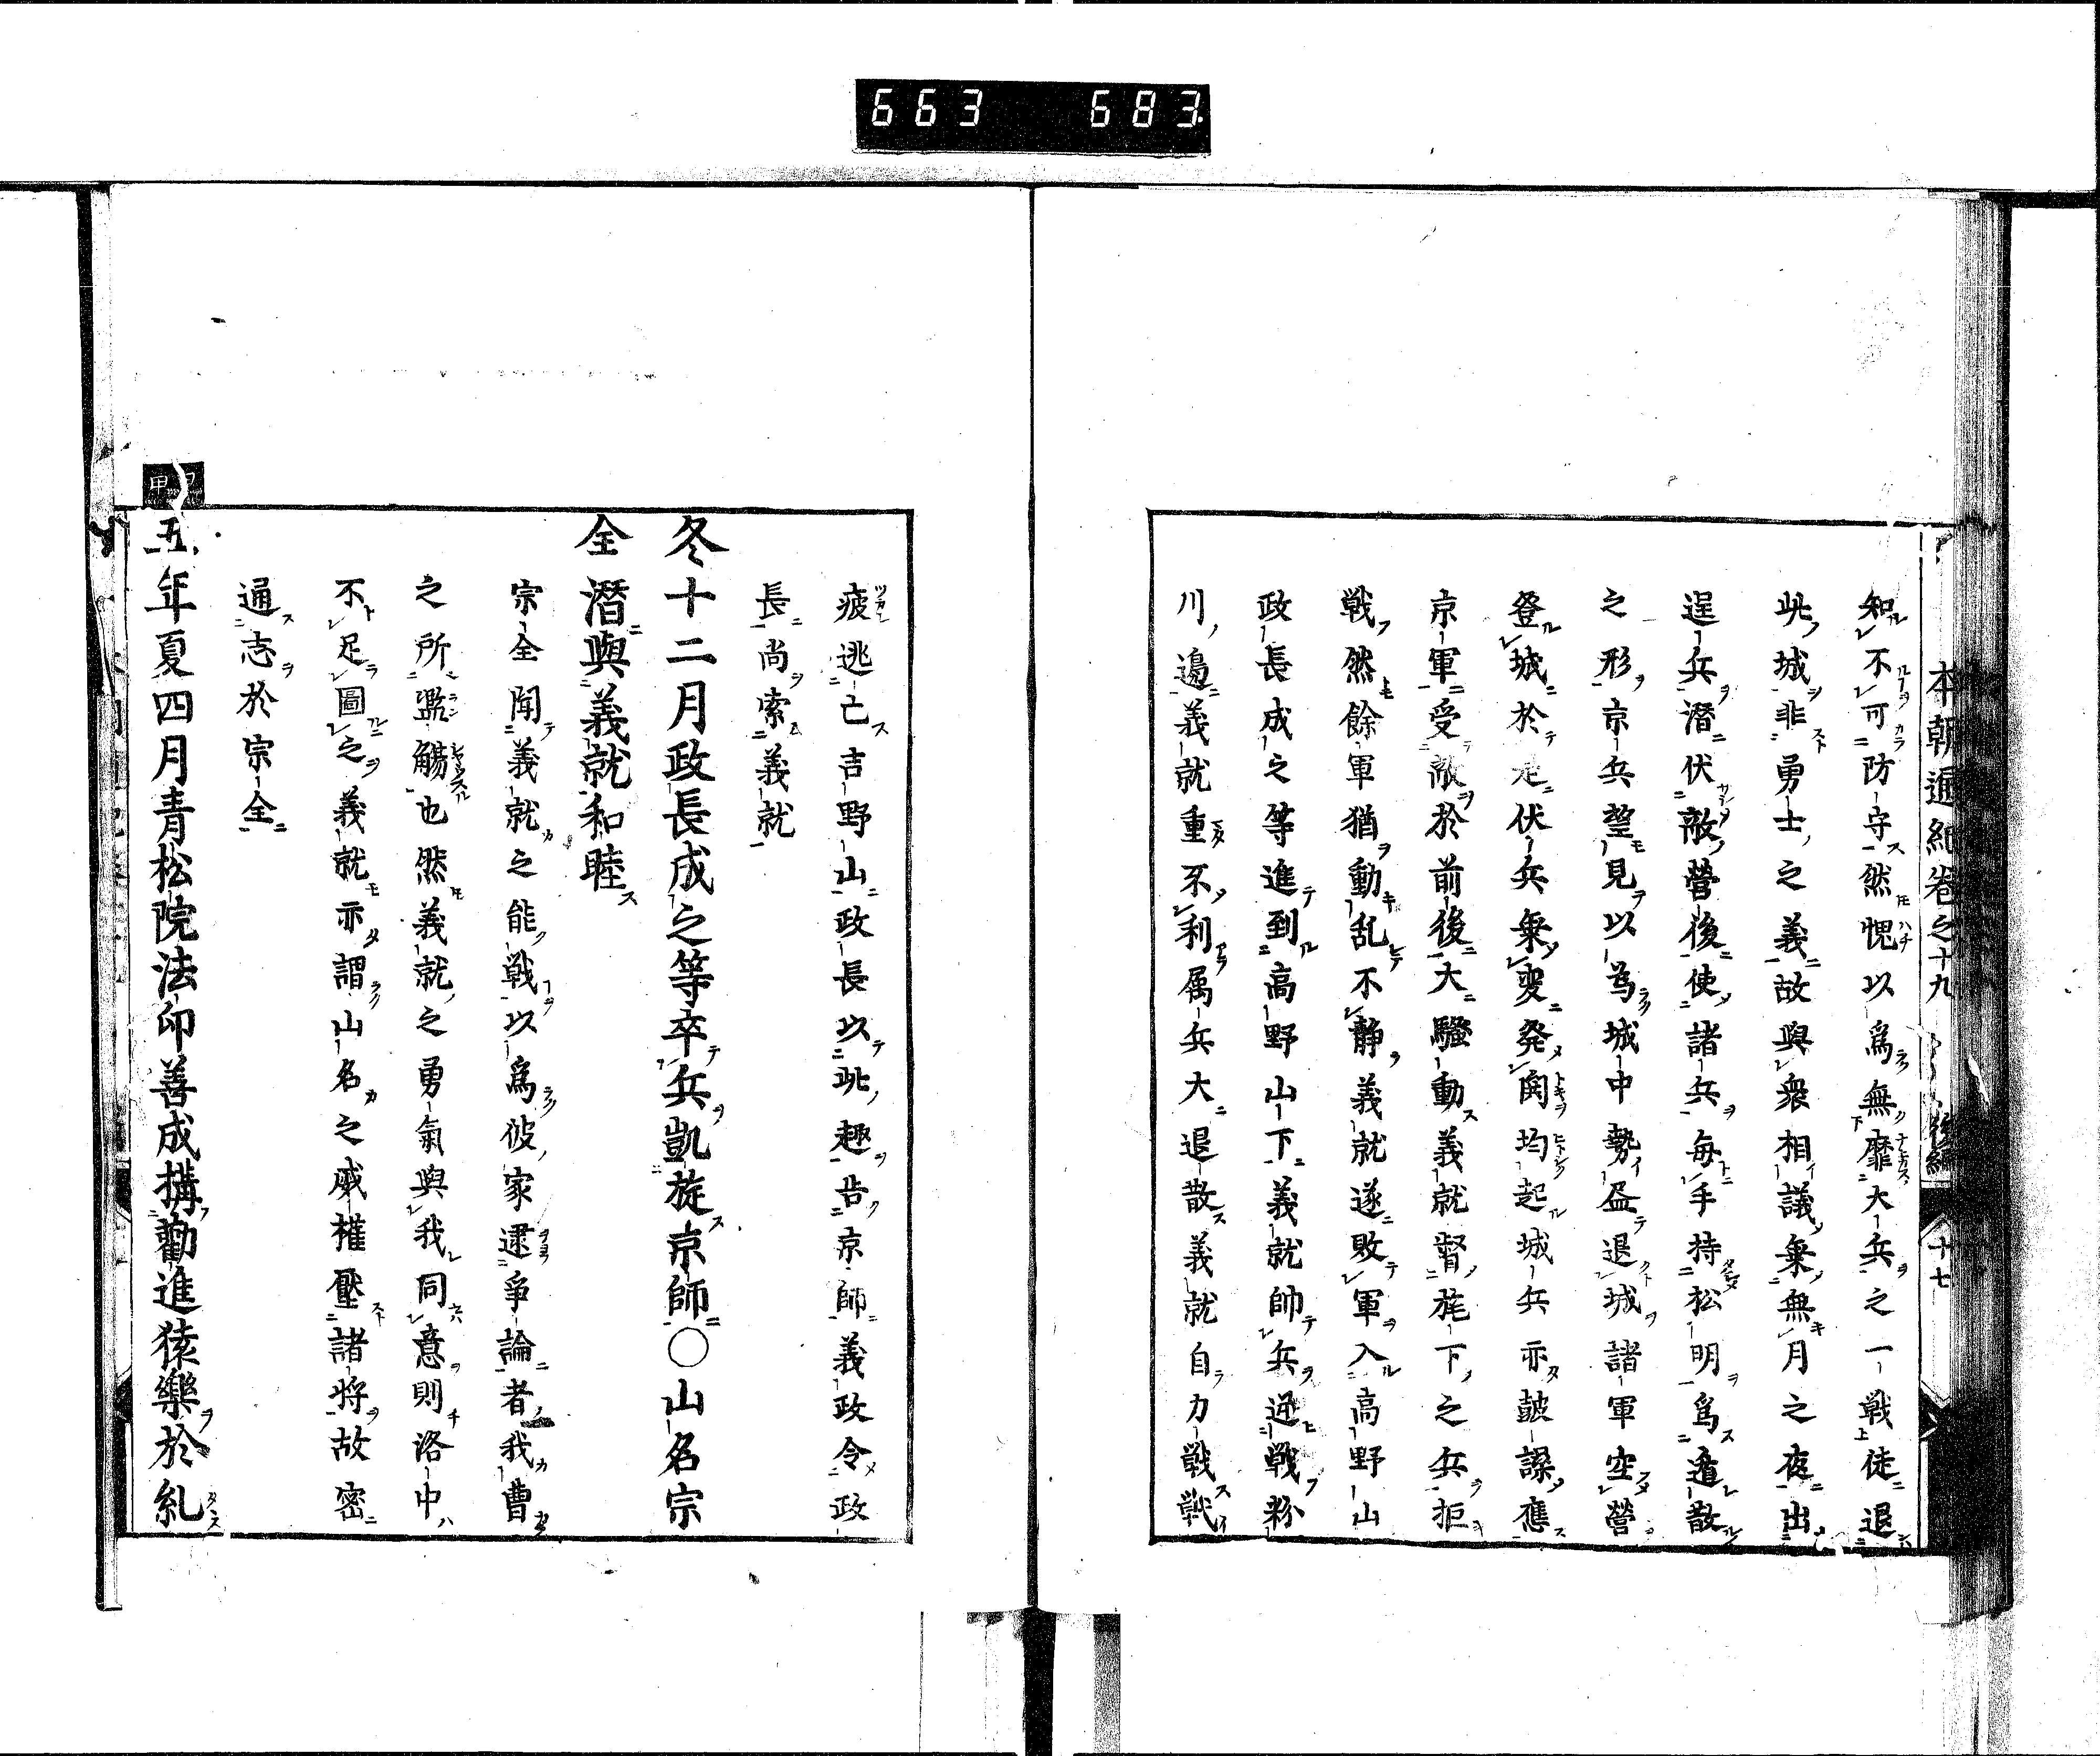 663 683
本朝通紀卷之十九 後編 十七
知不可防守然愧以爲無靡大兵之一戦徒退
此城非勇士之義故與衆相議乗無月之夜出
逞兵潜伏敵營後使諸兵每手持松明爲遁散
之形京兵望見以爲城中勢盈退城諸軍空營
登城於是伏兵乗変発鬨均起城兵亦鼓譟應
京軍受敵於前後大騷動義就督旄下之兵拒
戦然餘軍猶動乱不静義就遂敗軍入高野山
政長成之等進到高野山下義就帥兵逆戦粉
川邊義就重不利属兵大退散義就自力戦戦
疲逃亡吉野山政長以此趣告京師義政令政
長尚索義就
冬十二月政長成之等卒兵凱旋京師〇山名宗
全潜與義就和睦
宗全聞義就之能戦以爲彼家逮爭論者我曹
之所濫觴也然義就之勇氣與我同意則洛中
不足圖之義就亦謂山名之威權壓諸将故密
通志於宗全
甲申
五年夏四月青松院法印善成搆勸進猿樂於糺